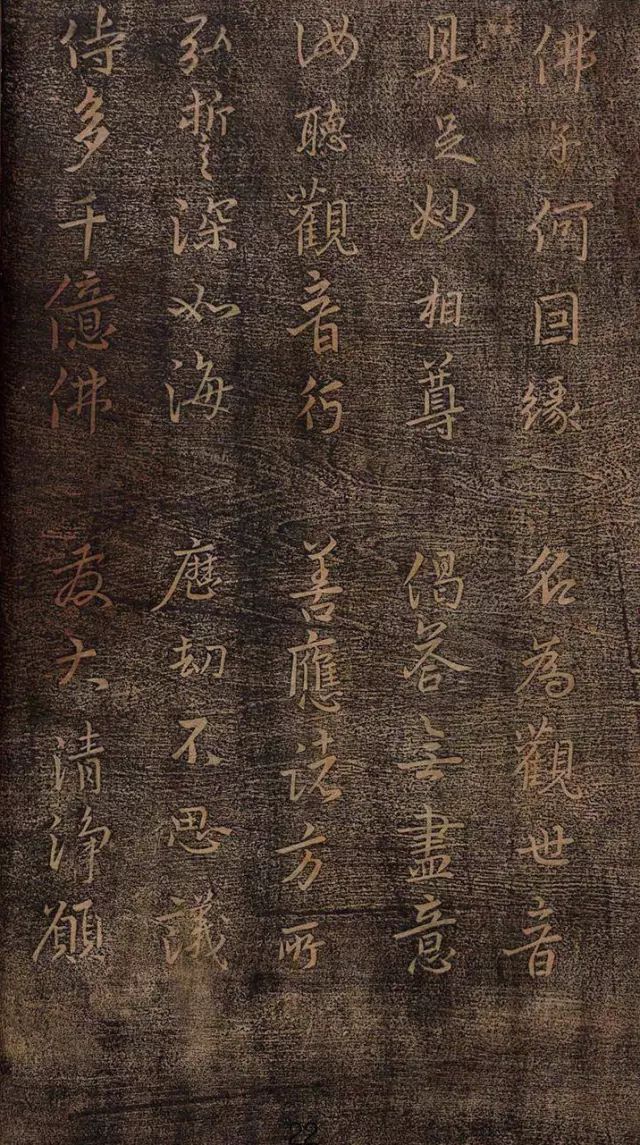 佛子何因緣　名為觀世音
具足妙相尊　偈答無盡意
汝聽觀音行　善應諸方所
弘誓深如海　歷劫不思議
侍多千億佛　發大清淨願
22